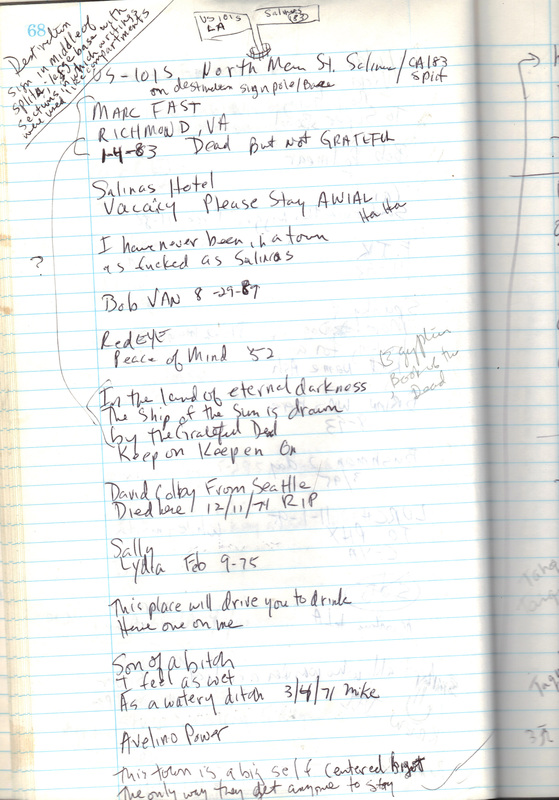 68
US 101S
LA
Salinas
183
Destination
sign in middle of
split, large base with
sections of which writings
were used like compartments
US-101S, North Main St. Salinas/CA183
split
on destination sign pole/Base
MARC FAST
RICHMOND, VA
1-4-83 Dead But Not GRATEFUL
Salinas Hotel
Vacaxy Please Stay AWIAL
Ha Ha
I have never been in a town
as fucked as Salinas
?
Bob VAN 8-29-87
RedEYE
Peace of Mind '52
In the land of eternal darkness
The Ship of the Sun is drawn
by the Grateful Dead
Keep on Keepen On
Egyptian
Book of the
Dead
David Colby From Seattle
Died here 12/11/71 RIP
Sally
Lydla Feb 9-75
This place will drive you to drink
Have one on me
Son of a bitch
I feel as wet
As a watery ditch 3/4/71 Mike
Avelino Power
This town is a big self centered bigot
The only way they get anyone to stay